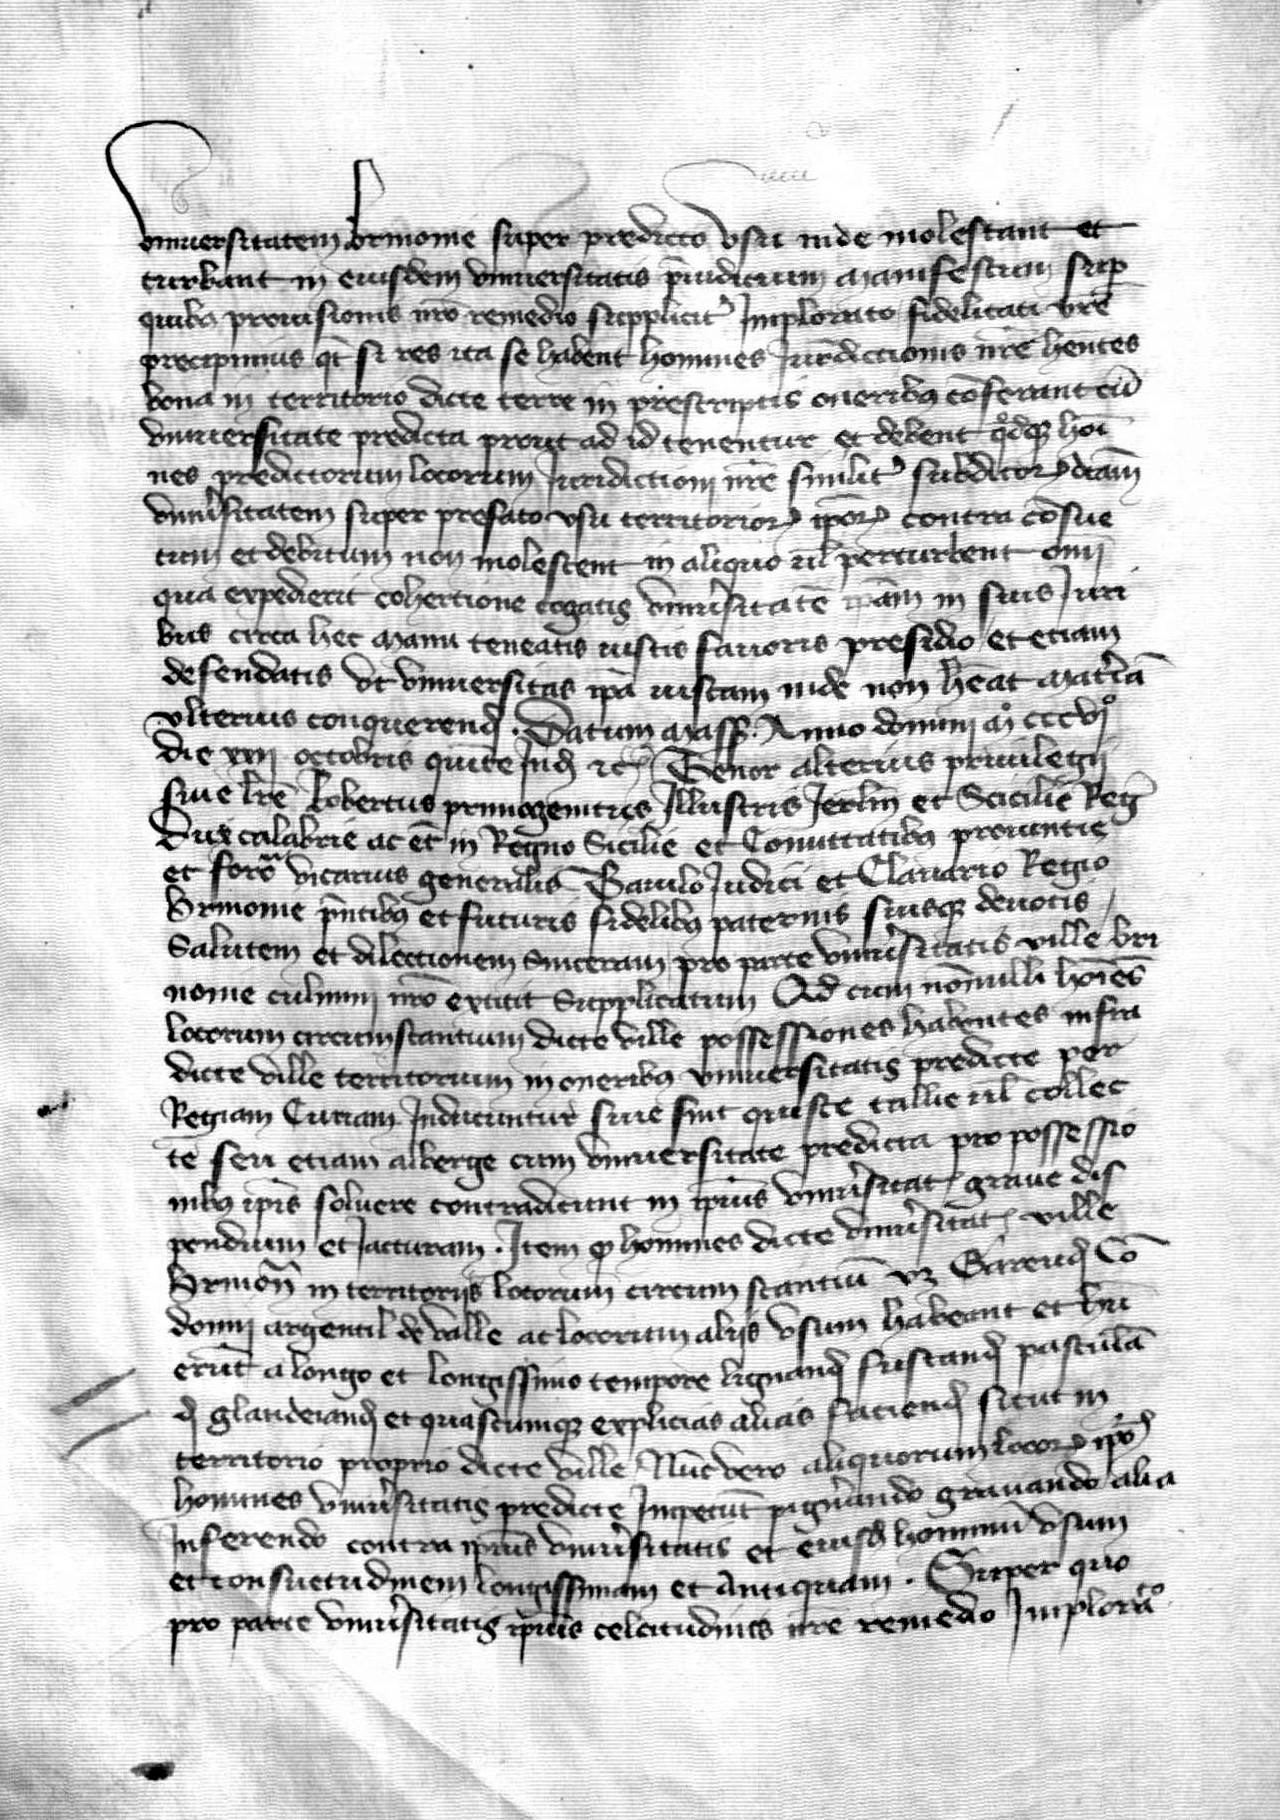 vniuersitatem brinonie super predicto vsu inde molestant et
turbant in eiusdem vniuersitatis p̄iudicium manifestum sup̱
quibꝰ prouisionis nr̄o remedio supplicit᾽ Implorato fidelitati vr̄e
precipimus qt̄ si res ita se habent homines Iurisdictionis nr̄e hn̄tes
bona in territorio dicte terre in prescriptis oneribꝰ cōferant cū
vniuersitate predicta prout ad id tenentur et debent qdꝙ hoī
nes predictorum locorum Iuridictioni nr̄e similit᾽ subditorꝝ dcām
vniu᾽sitatem super prefato vsu territoriorꝝ ip̄orꝝ contra cōsue
tum et debitum non molestent in aliquo ul̄ perturbent om̄i
qua expedierit cohertione cogatis vniu᾽sitatē ip̄am in suis Iuri
bus circa hec manu teneatis iustis fauoris presidio et etiam
defendatis vt vniuersitas ip̄a iustam inde non hēat mat᾽iā
vlterius conquerend̄ . Datum mass̄ . Anno domini mͦ cccvjͦ
die xxij octobris quīte Ind̄ etc̄ Tenor alterius priuilegij
siue lr̄e Robertus primogenitus Illustris Ierlm̄ et Scicilie Reḡ
Dux calabrie ac et̄ in Regno Sicilie et Comittatibꝰ prouintie
et forc̄ vicarius generalis Baiulo Iudici et Clauario Regio
brinonie pn̄tibꝰ et futuris fidelibꝰ paternis suisqꝫ deuotis
Salutem et dilectionem sinceram pro parte vniu᾽sitatis ville bri
nonie culmini nr̄o extitit supplicatum Qd cum nōnulli hoīes
locorum circumstantium dicte ville possessiones habentes infra
dicte ville territorium in oneribꝰ vniuersitatis predicte per
Regiam Curiam Inducuntur siue sint quiste tallie ul̄ collec
te seu etiam alberge cum vniuersitate predicta pro possessio
nibꝰ ip̄is soluere contradicunt in ip̄ius vniu᾽sitat᾽ graue dis
pendium et Iacturam . Item ꝙ homines dicte vniu᾽sitat᾽ ville
brinoń in territorijs locorum circum stantiū vꝫ Garend̄ Cō
donij argentil de valle ac locorum alijs vsum habeant et hu
erūt a longo et longissimo tempore lignand̄ fustand̄ pasculā
d̄ glandeiand̄ et quascumqꝫ explicias alias faciend̄ sicut in
territorio proprio dicte ville Nūc vero aliquorum locorꝝ ip̄orꝝ
homines vniu᾽sitatis predicte Inpetūt pign᾽ando grauando alia
Inferendo contra ip̄ius vniu᾽sitatis et eiusd̄ hominū vsum
et consuetudinem longissimam et Antiquam . Super quo
pro parte vniu᾽sitatis ip̄ius celcitudinis nr̄e remedio Implorato